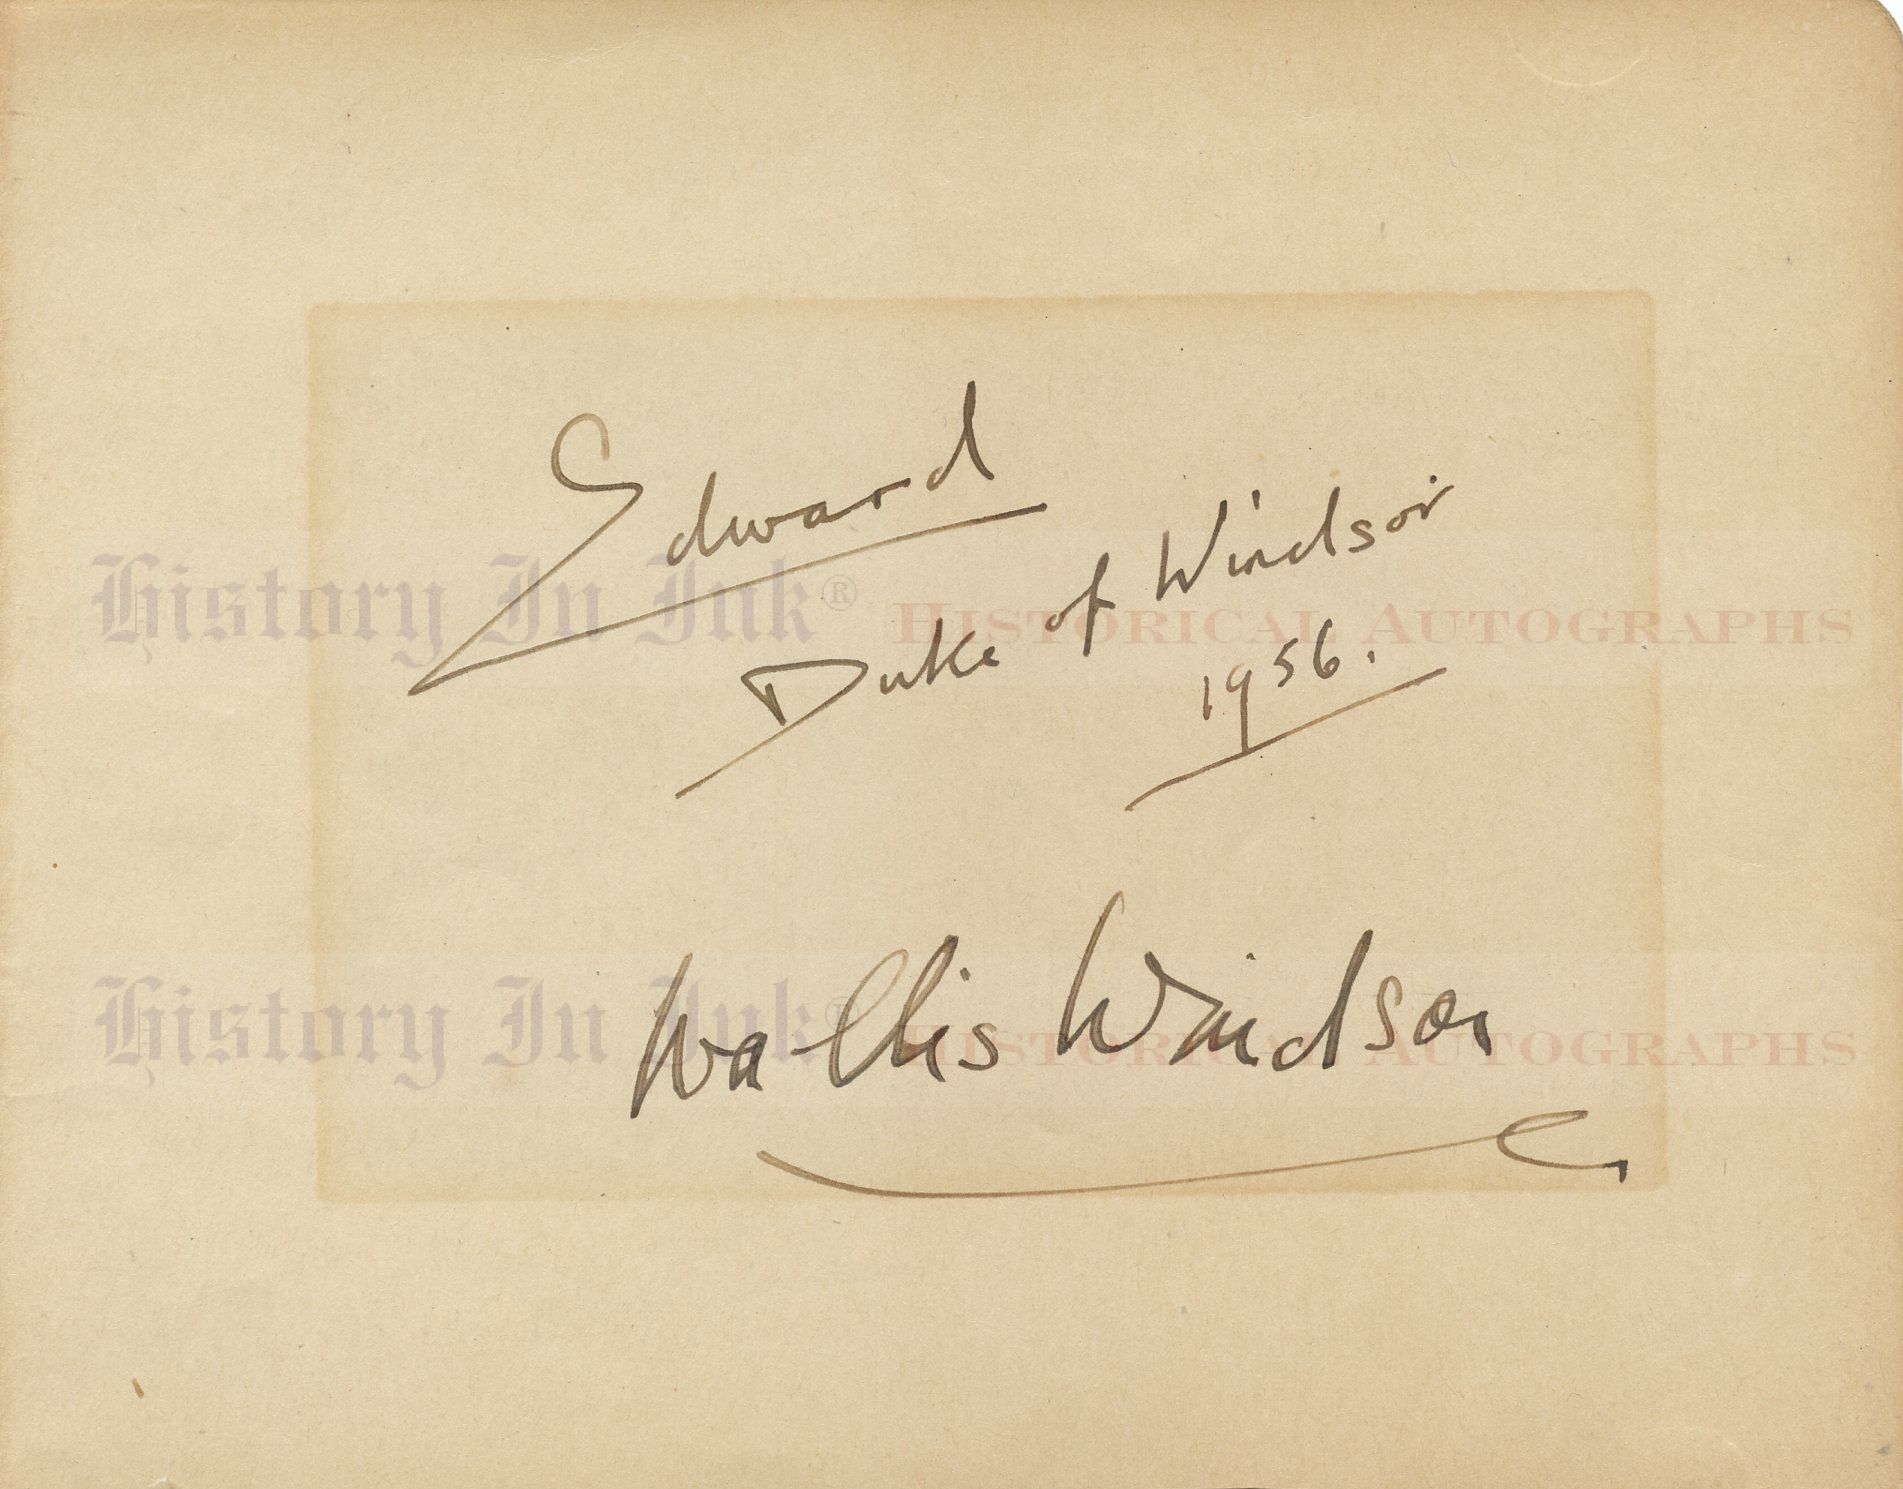 Edward
Duke of Windsor
1956.
History In Ink® HISTORICAL AUTOGRAPHS
Wallis Windsor
History In Ink® HISTORICAL AUTOGRAPHS